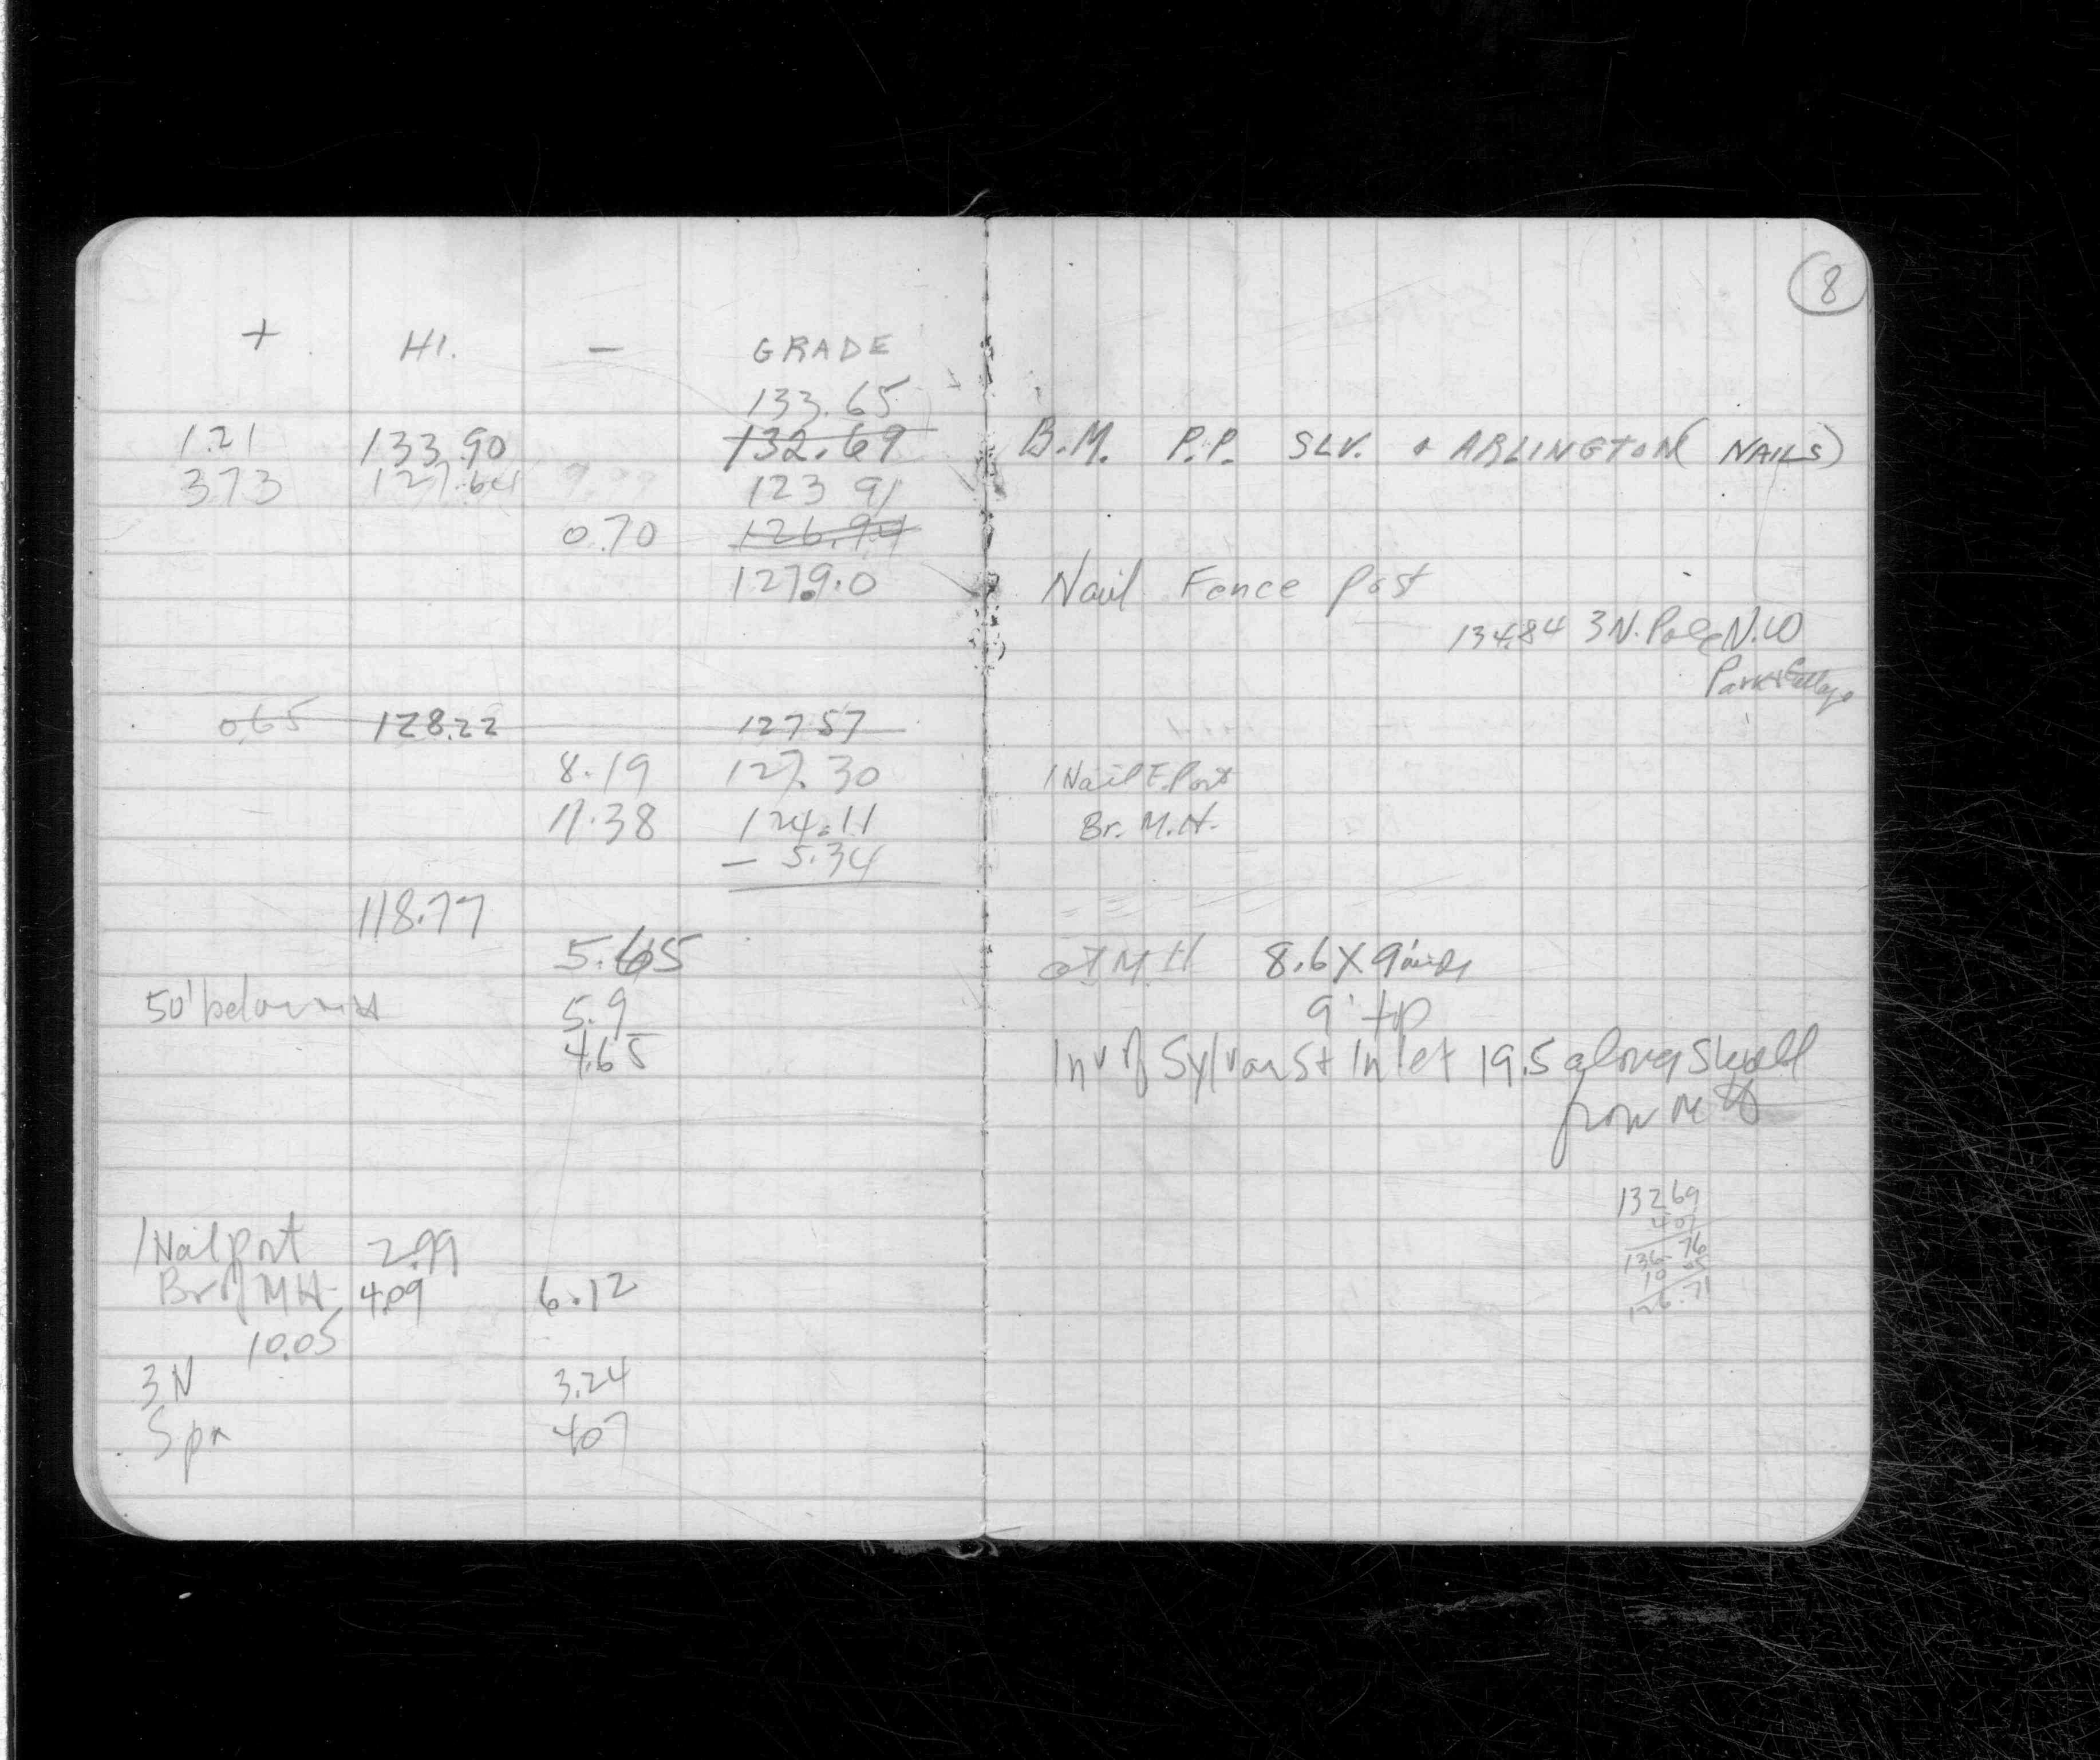 8
+ HI. — GRADE
133.65
1.21 133.90 132.69 B.M. P.P. SLV. + ARLINGTON (NAILS)
3.73 127.64 123 91
0.70 126.94
127.9.0 Nail Fence post
134.84 3 N. Pole N.W
Park &
0.65 128.22 127 57
8.19 127.30 1 Nail F. Post
11.38 124.11 Br. M.H.
— 5.34
118.77
5.65 at M H 8.6 X 9
50' below MH 5.9 9'
4.65 Inv of Sylvan St Inlet 19.5 along Swall
from M H
132 69
4 07
136. 76
10 05
126.71
1 Nail post 2.99
Br of MH 4.09 6.12
10.05
3 N 3.24
Spk 4.07